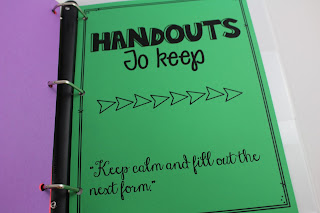 HANDOUTS
To keep
"Keep calm and fill out the
next form."